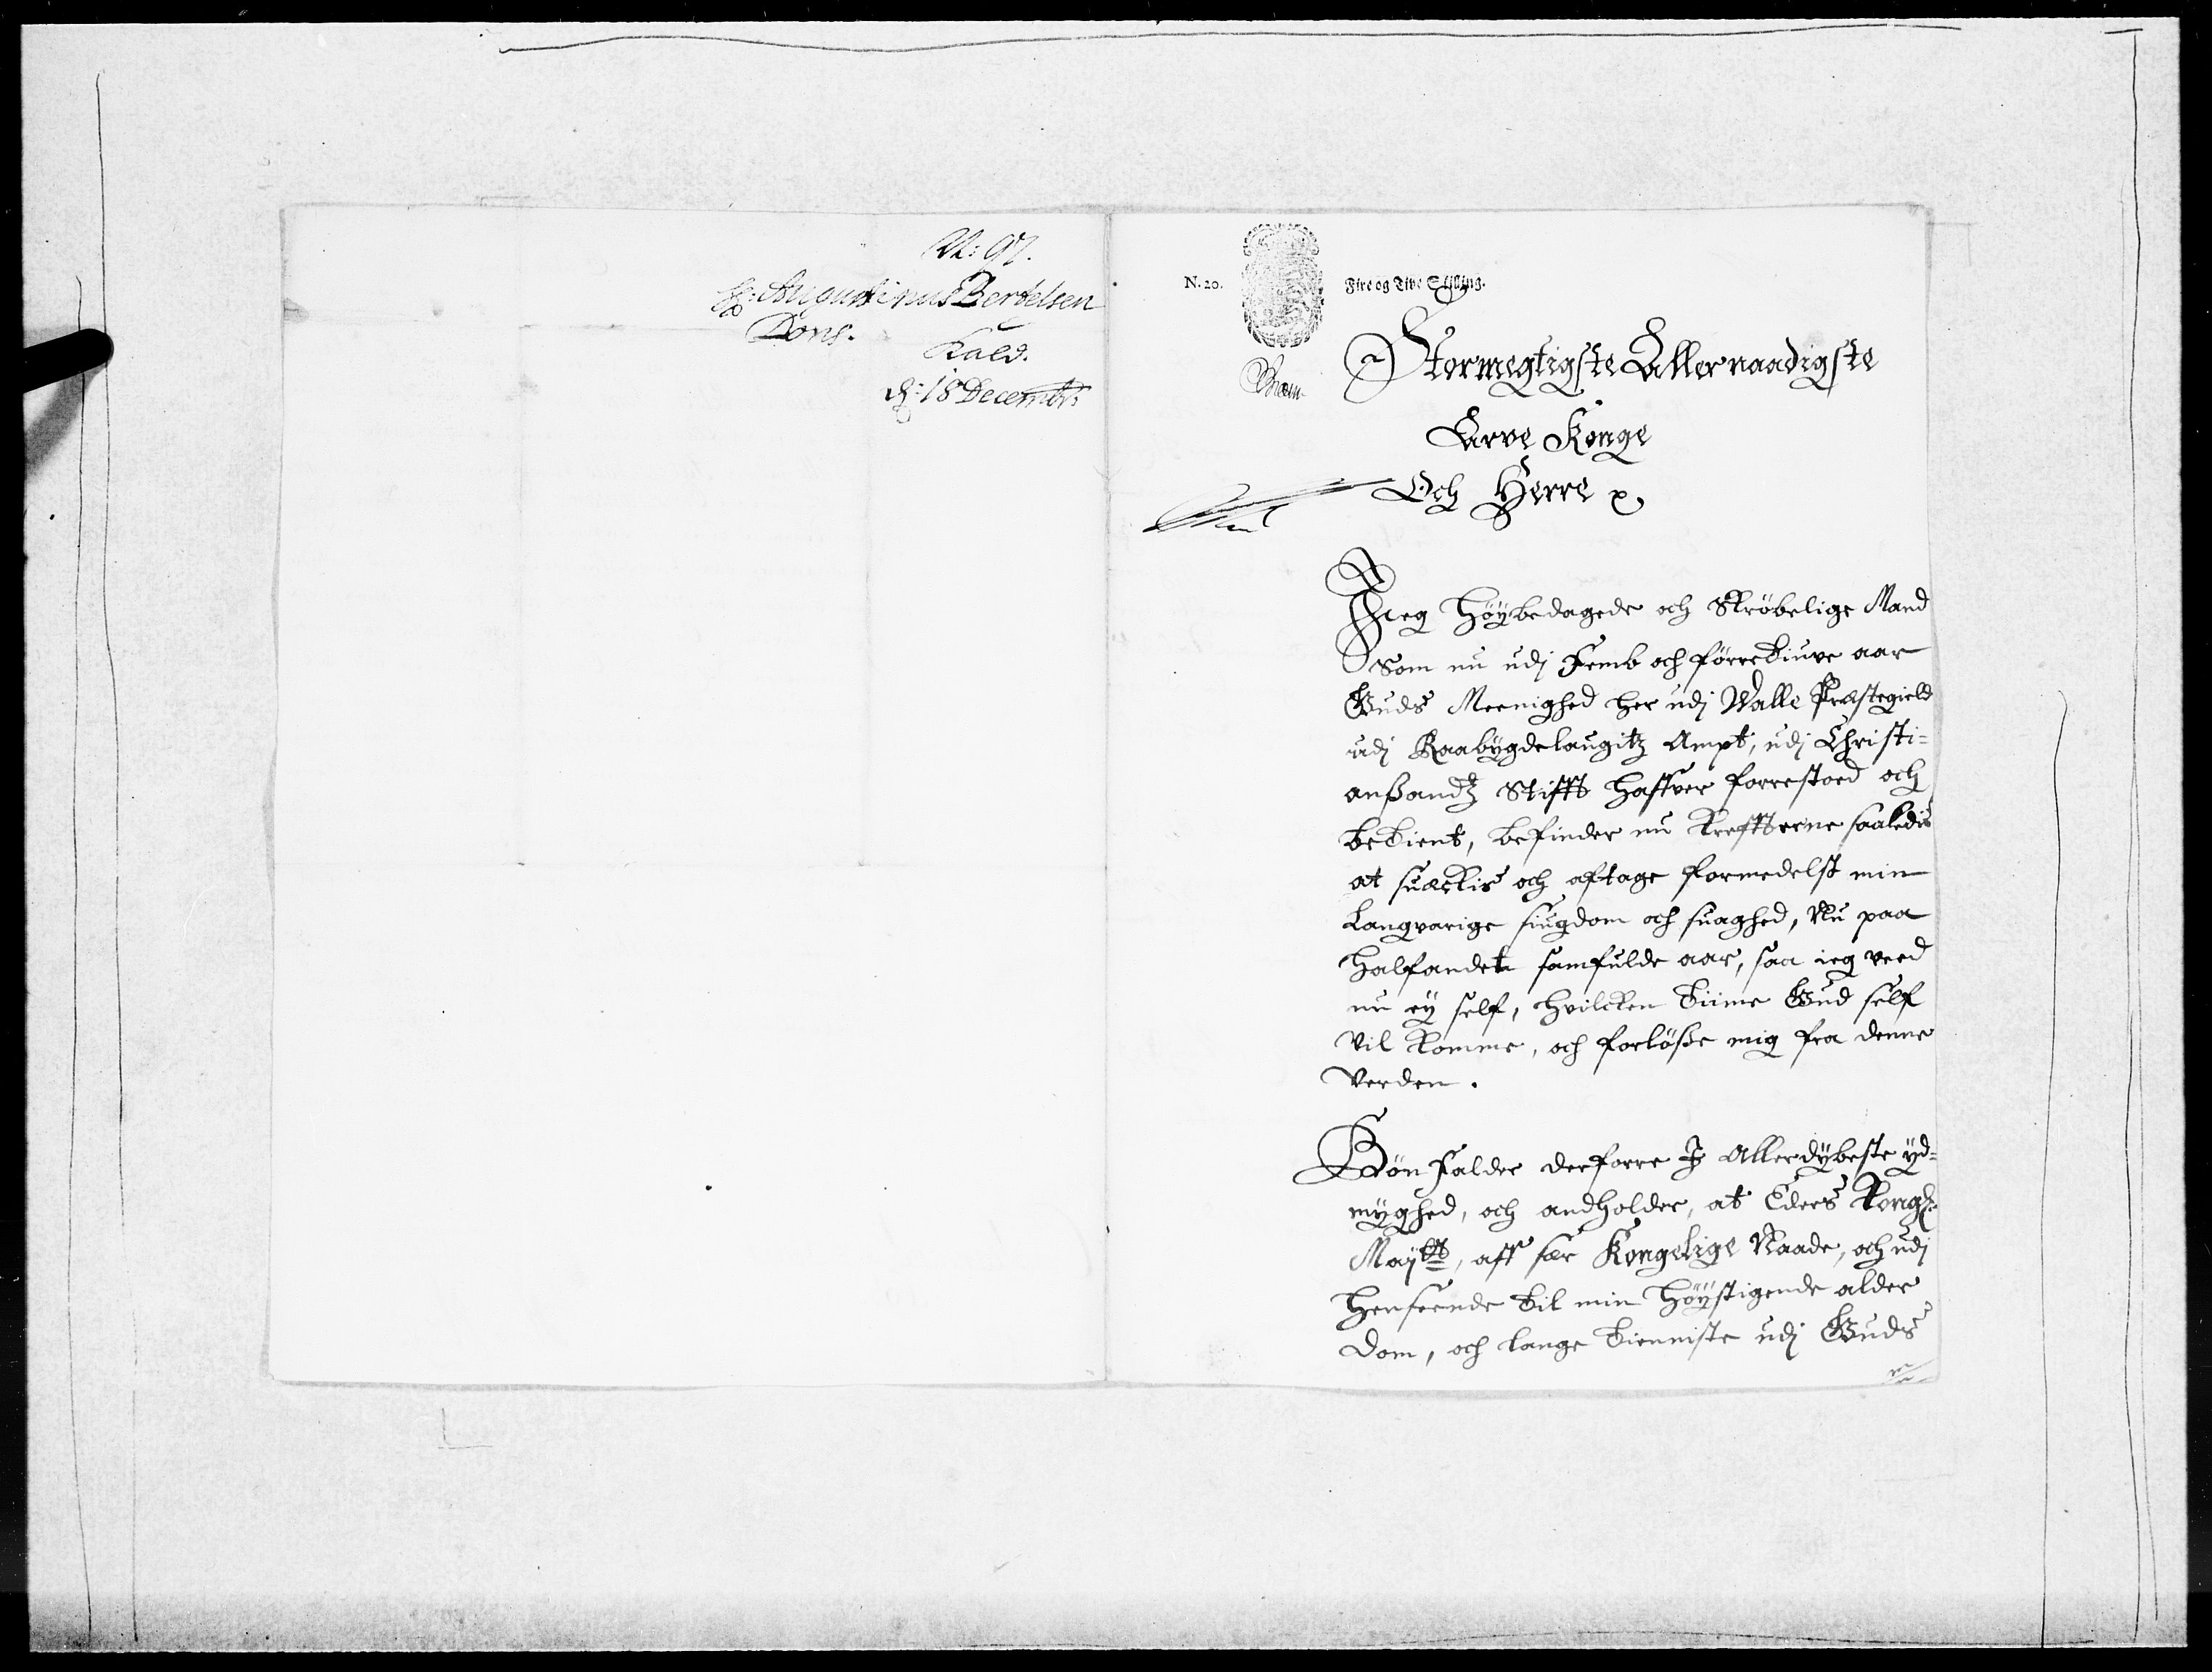 N: 97.
Hr: Augustinus Bertelsen
Dons.
Kald.
d: 18 Decembr:
N. 20.
Fire og Tive Skilling.
Stormegtigste Allernaadigste
Arve Konge
Och Herre
Jeg Höybedagede och Skröbelige Mand
Som nu udj Femb och förretiuve aar
Guds Meenighed her udj Walle Præstegield
udj Raabygdelaugitz Ampt, udj Christi-
anßandtz Stifft haffver forrestoed och
betient, befinder nu Kreffterne saaledis
at suæckis och aftage formedelst min
Langvarige siugdom och suaghed, Nu paa
Halfandet samfulde aar, saa ieg veed
nu ey self, hvilcken tiime Gud self
vil komme, och forlöße mig fra denne
verden.
Bön Falder derforre J Allerdybeste yd-
myghed, och andholder, at Eders Kongl:
Mayts, aff sær Kongelige Naade, och udj
Henseende til min Höystigende alder
dom, och lange tienniste udj Guds